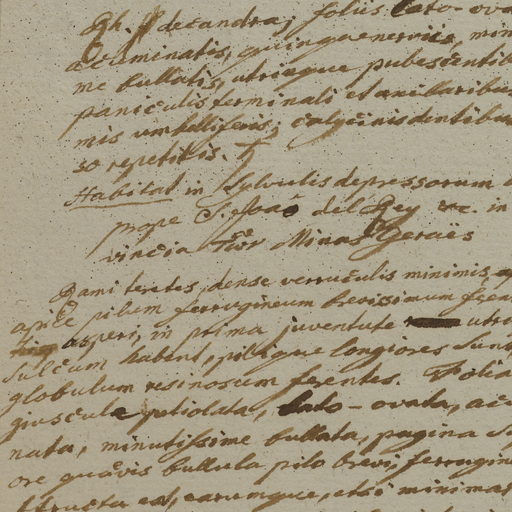 Rh. decandra; foliis lato-ova
acuminatis, quinquenerviis, min
me bullatis, utrinque pubescentib
paniculis terminali et axillaribu
mis umbelliferis; calycinis dentibu
so repetitis.
Habitat in sylvulis depressorum
prope S. Joaõ del Rey &c. in
vincia Minas Geraës
Rami teretes, dense verruculis minimis, a
apice pilum ferrugineum brevissimum feren
asperi, in prima juventute utro
sulcum habent, pilique longiores sunt
globulum resinosum ferentes. Folia
giuscule petiolata, lato-ovata, ac
nata, minutissime bullata, pagina s
ore quavis bullula pilo brevi, ferrugin
structa est, earumque, etsi minimas